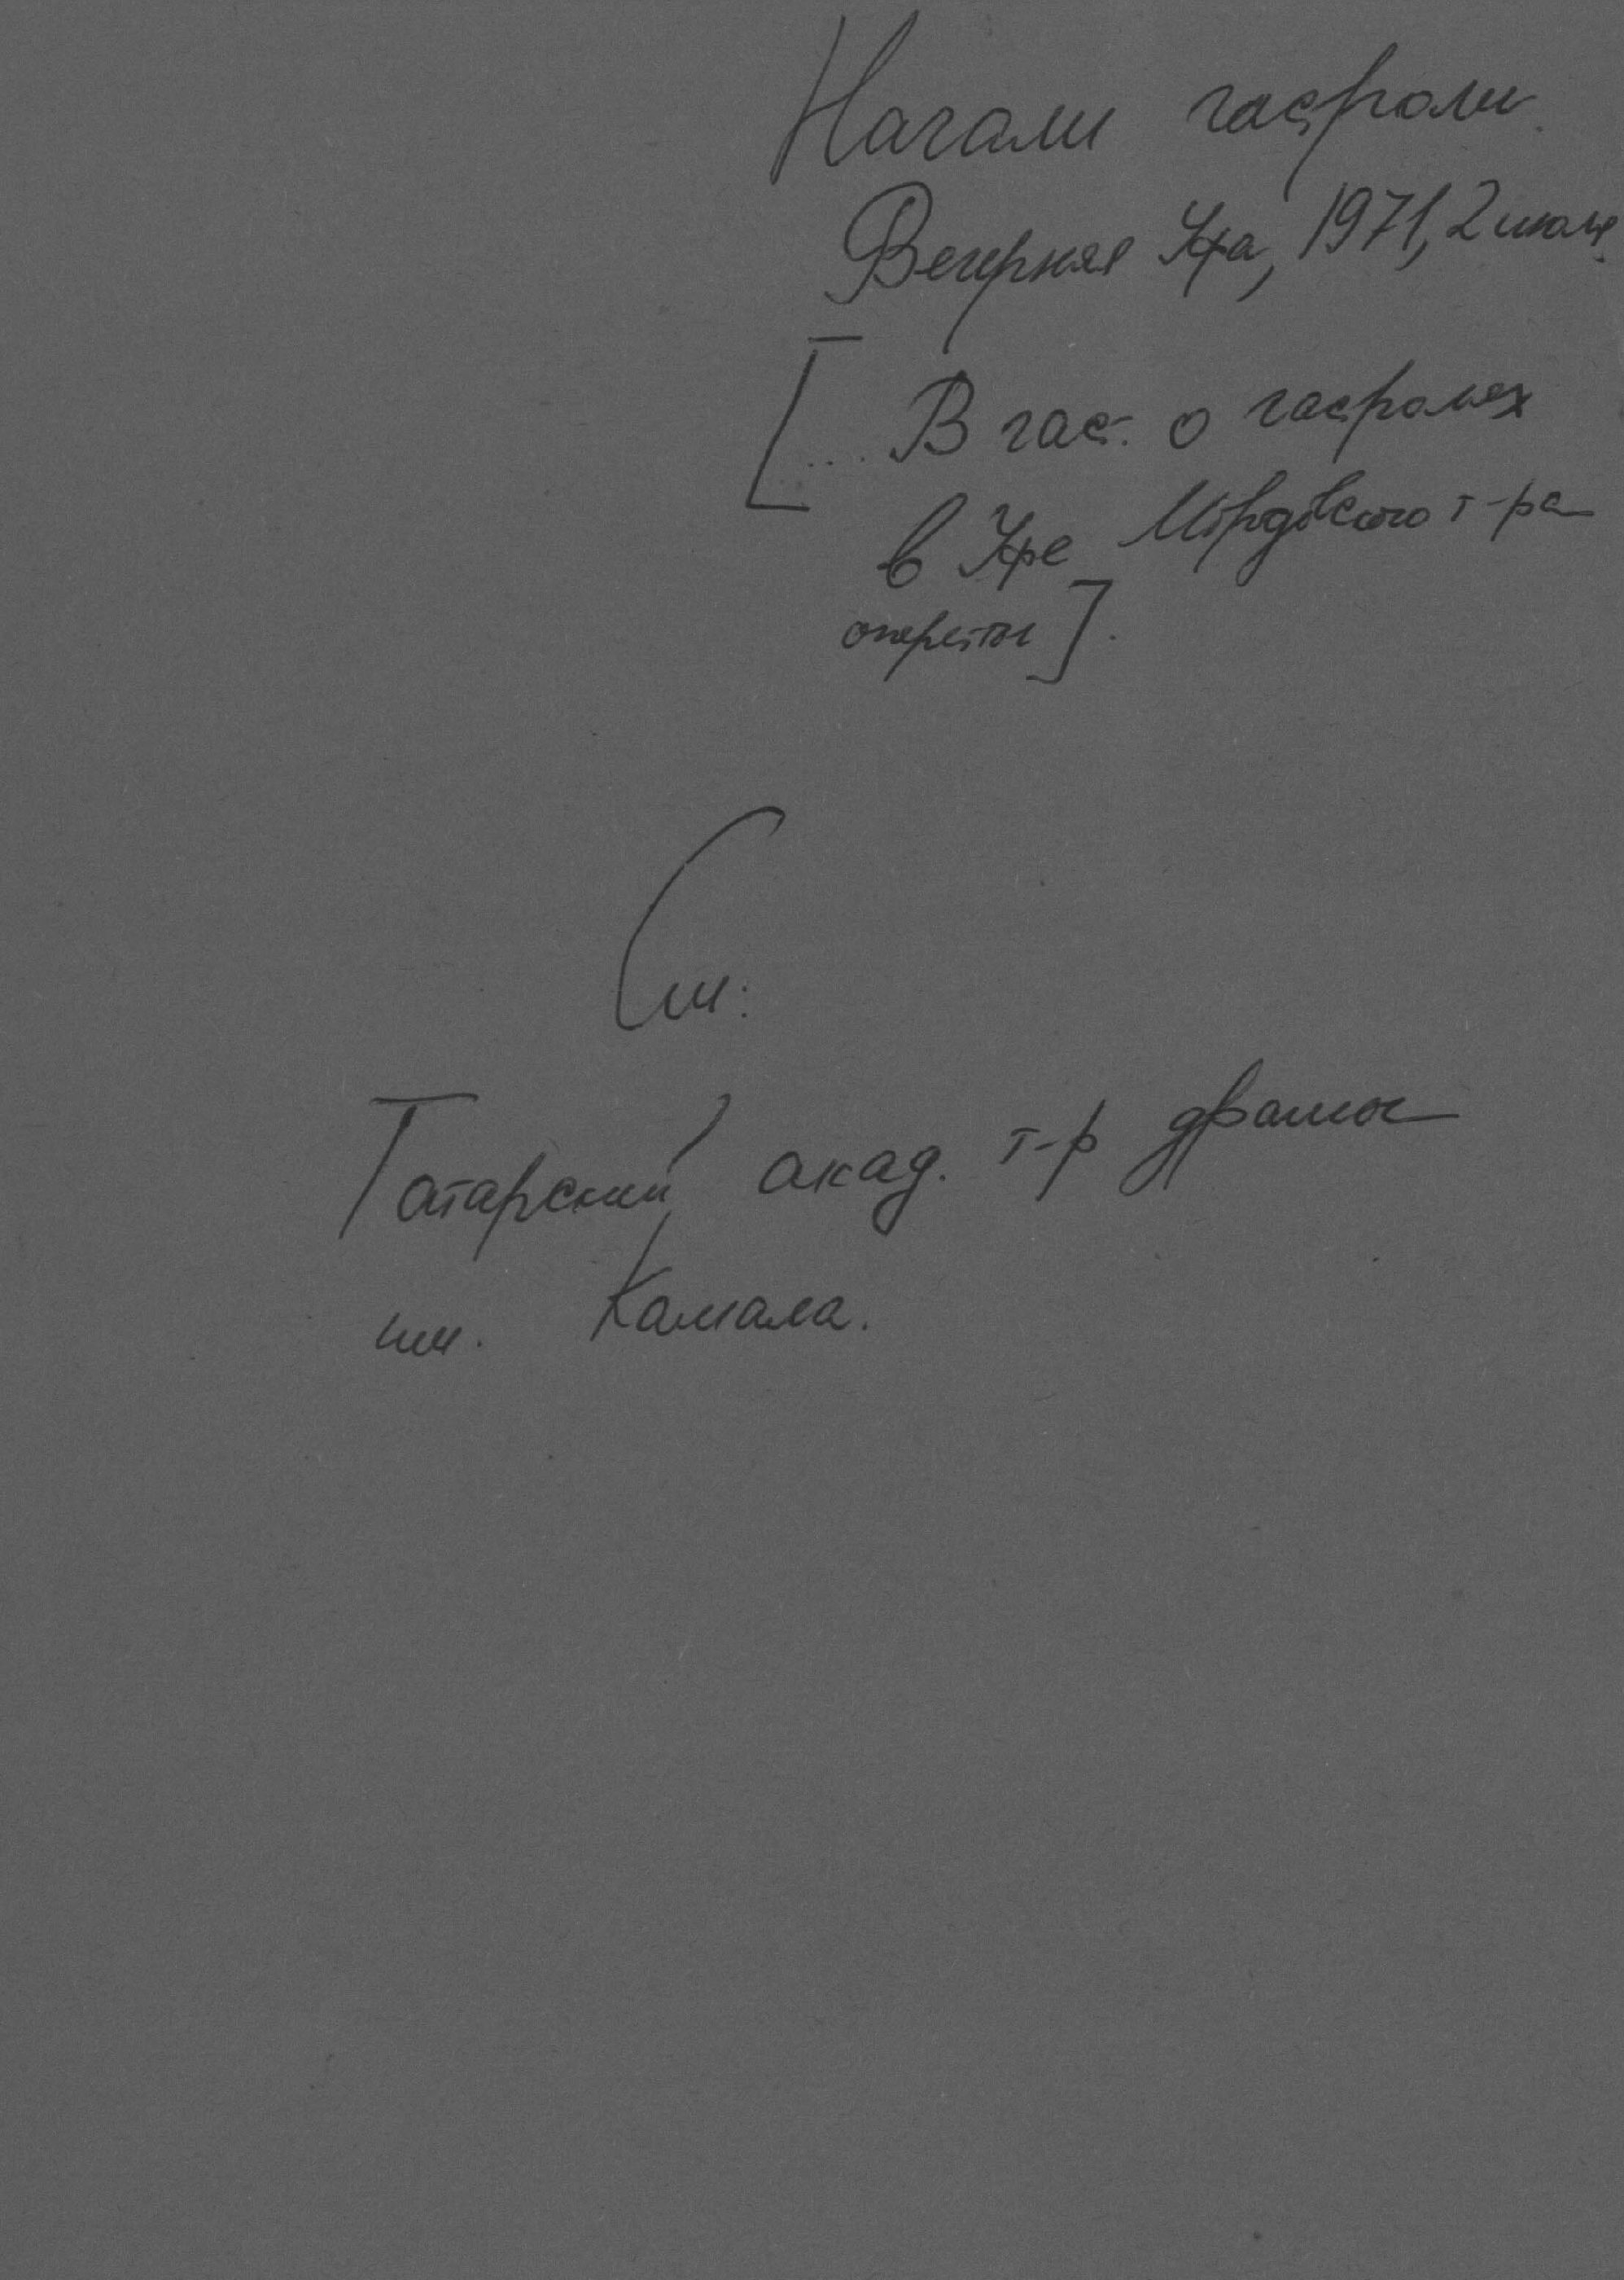 Начали гастроли.
Вечерняя Уфа, 1971, 2 июля.
[... В част. о гастролях
в Уфе Мордовского т-ра
оперетты].
См:
Татарский акад. т-р драмы
им. Камала.